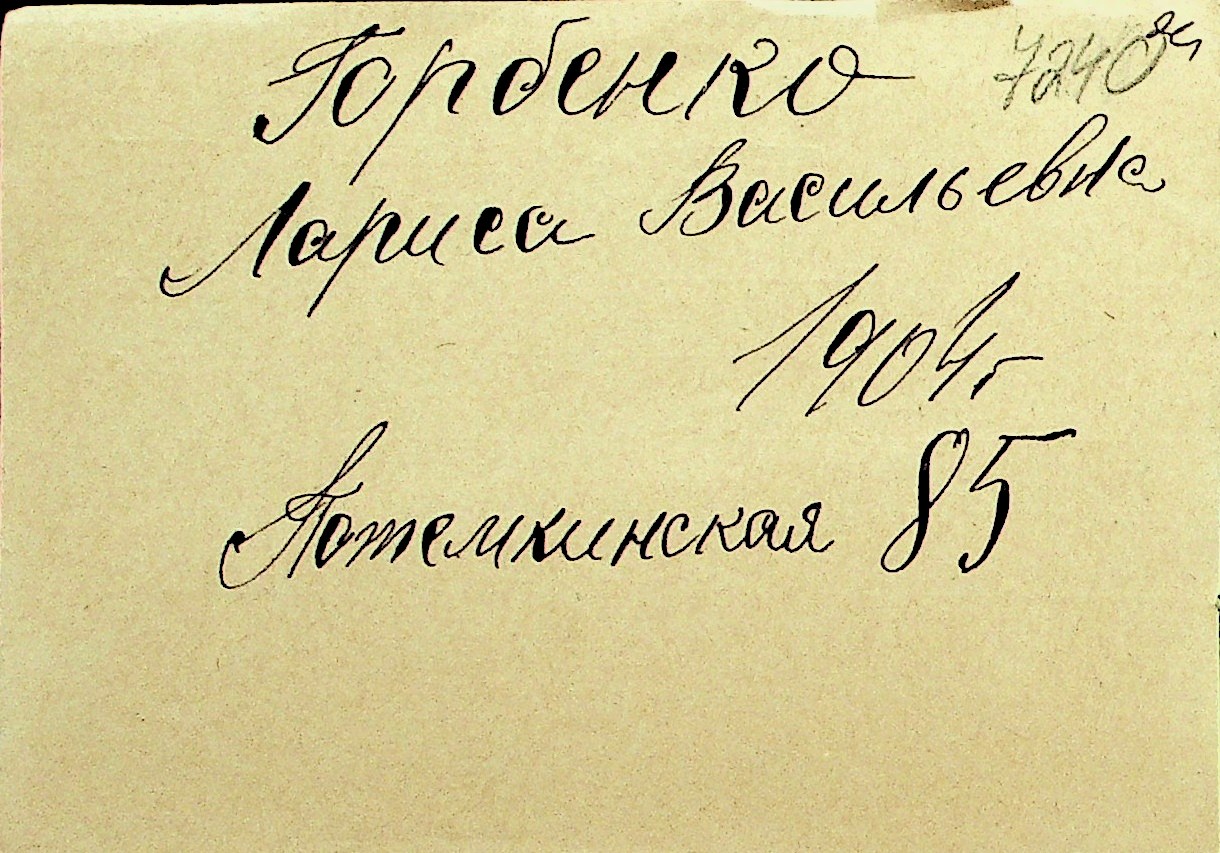 Горбенко 7240
Лариса Васильевна
1904г
Потемкинская 85